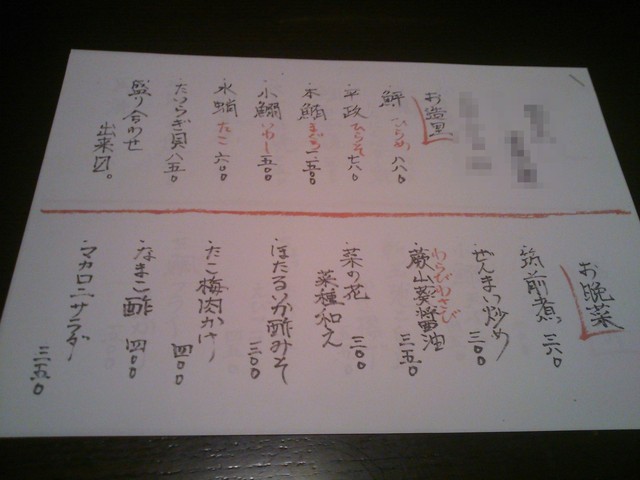 お造里
鮃 ひらめ 八八〇
平政 ひらまさ 七八〇
本鮪 まぐろ 一五〇〇
小鰯 いわし 五〇〇
水蛸 たこ 六〇〇
たいらぎ貝 八五〇
盛り合わせ
出来〼。
お晩菜
筑前煮 三八〇
ぜんまい炒め 三〇〇
わらびわさび
蕨山葵醤油 三五〇
菜の花
菜種和え 三〇〇
ほたるいか酢みそ 三〇〇
たこ梅肉かけ 四〇〇
なまこ酢 四〇〇
マカロニサラダ 三五〇